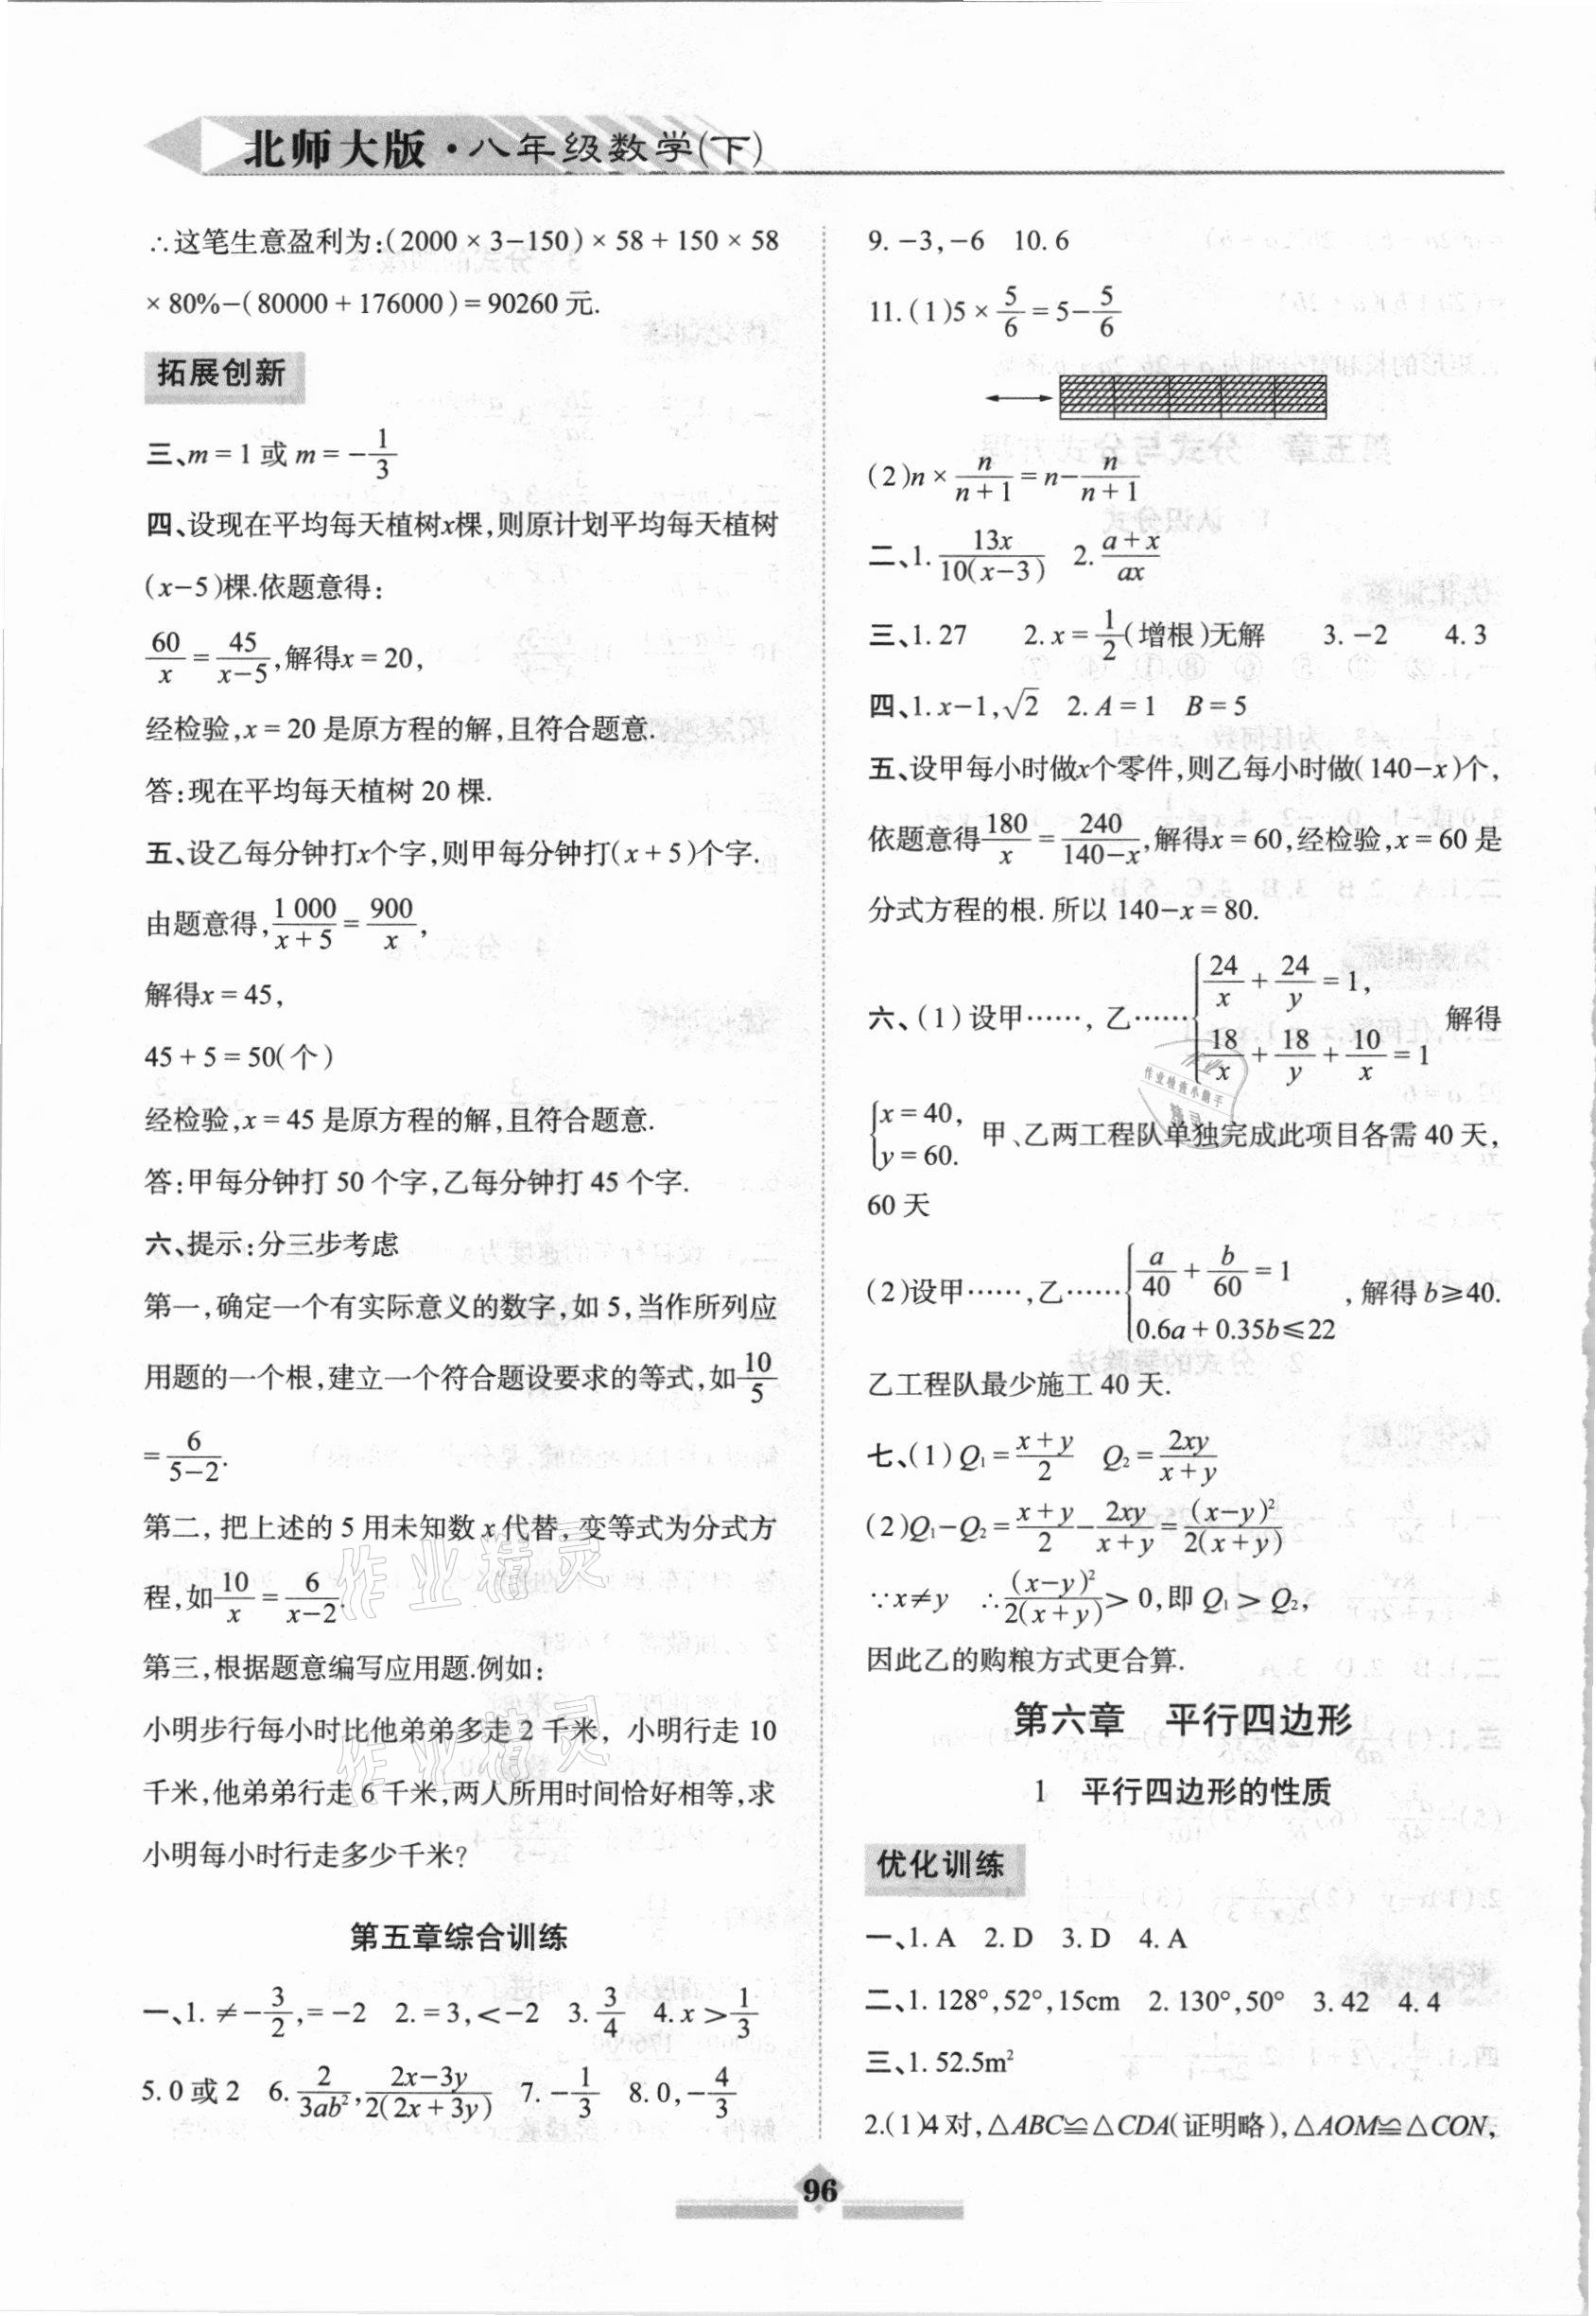 北师大版·八年级数学(下)
∴这笔生意盈利为:(2000 × 3-150) × 58 + 150 × 58
× 80%-(80000 + 176000) = 90260 元.
拓展创新
三、m = 1 或 m = -1/3
四、设现在平均每天植树x棵,则原计划平均每天植树
(x-5)棵.依题意得:
60/x = 45/(x-5),解得x = 20,
经检验,x = 20 是原方程的解,且符合题意.
答:现在平均每天植树 20 棵.
五、设乙每分钟打x个字,则甲每分钟打(x + 5)个字.
由题意得,1 000/(x + 5) = 900/x,
解得x = 45,
45 + 5 = 50(个)
经检验,x = 45 是原方程的解,且符合题意.
答:甲每分钟打 50 个字,乙每分钟打 45 个字.
六、提示:分三步考虑
第一,确定一个有实际意义的数字,如 5,当作所列应
用题的一个根,建立一个符合题设要求的等式,如10/5
=6/(5-2).
第二,把上述的 5 用未知数 x 代替,变等式为分式方
程,如10/x = 6/(x-2).
第三,根据题意编写应用题.例如:
小明步行每小时比他弟弟多走 2 千米,小明行走 10
千米,他弟弟行走 6 千米,两人所用时间恰好相等,求
小明每小时行走多少千米?
第五章综合训练
一、1. ≠-3/2,= -2 2. = 3,<-2 3. 3/4 4. x >1/3
5. 0 或 2 6. 2/(3ab²),(2x-3y)/(2(2x + 3y)) 7. -1/3 8. 0,-4/3
9. -3,-6 10. 6
11. (1)5 × 5/6 = 5-5/6
(2)n × n/(n + 1) = n-n/(n + 1)
二、1. 13x/(10(x-3)) 2. (a + x)/(ax)
三、1. 27 2. x = 1/2(增根)无解 3. -2 4. 3
四、1. x-1,√2 2. A = 1 B = 5
五、设甲每小时做x个零件,则乙每小时做(140-x)个,
依题意得180/x = 240/(140-x),解得x = 60,经检验,x = 60 是
分式方程的根. 所以 140-x = 80.
六、(1) 设甲……, 乙……{24/x + 24/y = 1, 18/x + 18/y + 10/x = 1 解得
{x = 40, y = 60. 甲、乙两工程队单独完成此项目各需 40 天,
60 天
(2)设甲……,乙……{a/40 + b/60 = 1 0.6a + 0.35b≤22 ,解得 b≥40.
乙工程队最少施工 40 天.
七、(1) Q₁ = (x + y)/2 Q₂ = 2xy/(x + y)
(2)Q₁-Q₂ = (x + y)/2-2xy/(x + y) = (x-y)²/(2(x + y))
∵x≠y ∴(x-y)²/(2(x + y))> 0,即 Q₁ > Q₂,
因此乙的购粮方式更合算.
第六章 平行四边形
1 平行四边形的性质
优化训练
一、1. A 2. D 3. D 4. A
二、1. 128°,52°,15cm 2. 130°,50° 3. 42 4. 4
三、1. 52.5m²
2.(1)4 对,△ABC≌△CDA(证明略),△AOM≌△CON,
作业精灵
作业精灵
作业检查小助手
96